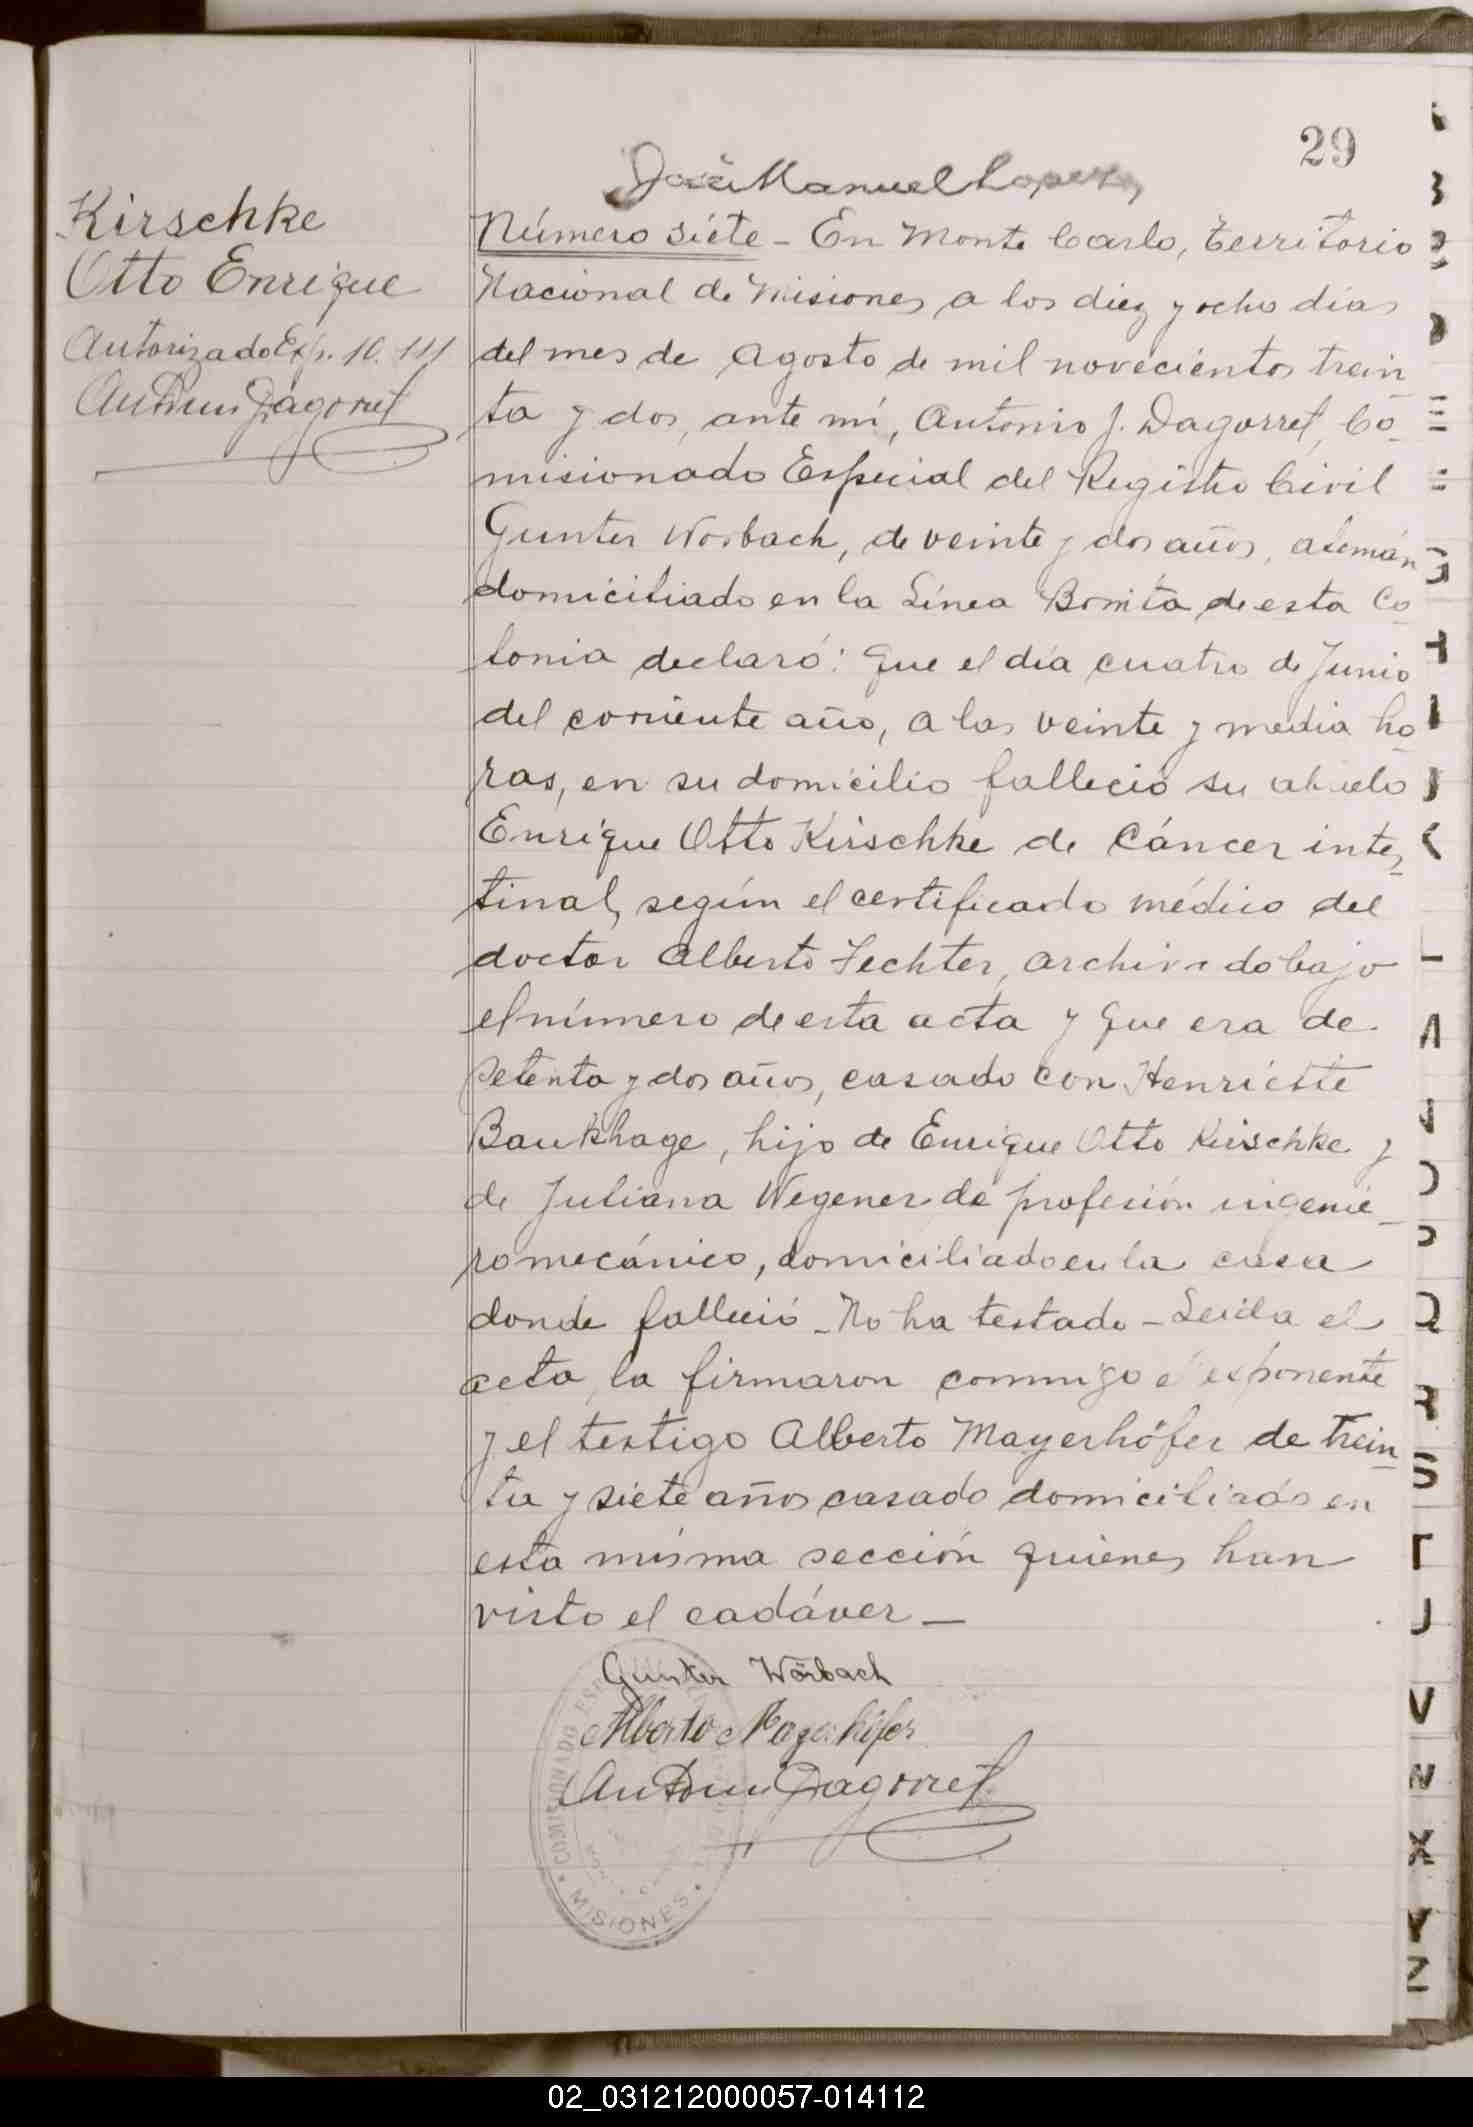 29
José Manuel Lopez
Kirschke
Otto Enrique
Autorizado Exp. 10.
Antonio J. Dagorret
Número siete - En Monte Carlo, territorio
Nacional de Misiones a los diez y ocho dias
del mes de Agosto de mil novecientos trein
ta y dos, ante mí, Antonio J. Dagorret, Co-
misionado Especial del Registro Civil
Gunter Worbach, de veinte y dos años, alemán
domiciliado en la Línea Bonita de esta Co-
lonia declaró: Que el día cuatro de Junio
del corriente año, a las veinte y media ho-
ras, en su domicilio falleció su abuelo
Enrique Otto Kirschke de Cáncer intes-
tinal, según el certificado médico del
doctor Alberto Fechter, archivado bajo
el número de esta acta y que era de
setenta y dos años, casado con Henriette
Baukhage, hijo de Enrique Otto Kirschke y
de Juliana Wegener de profesión ingenie-
ro mecánico, domiciliado en la casa
donde falleció - No ha testado - Leida el
acta, la firmaron conmigo el exponente
y el testigo Alberto Mayerhöfer de trein-
ta y siete años casado domiciliado en
esta misma sección quienes han
visto el cadáver -
Gunter Wörbach
Alberto Mayerhöfer
Antonio J. Dagorret
COMISIONADO
MISIONES
L
Q
R
S
T
U
V
X
Y
Z
02_031212000057-014112